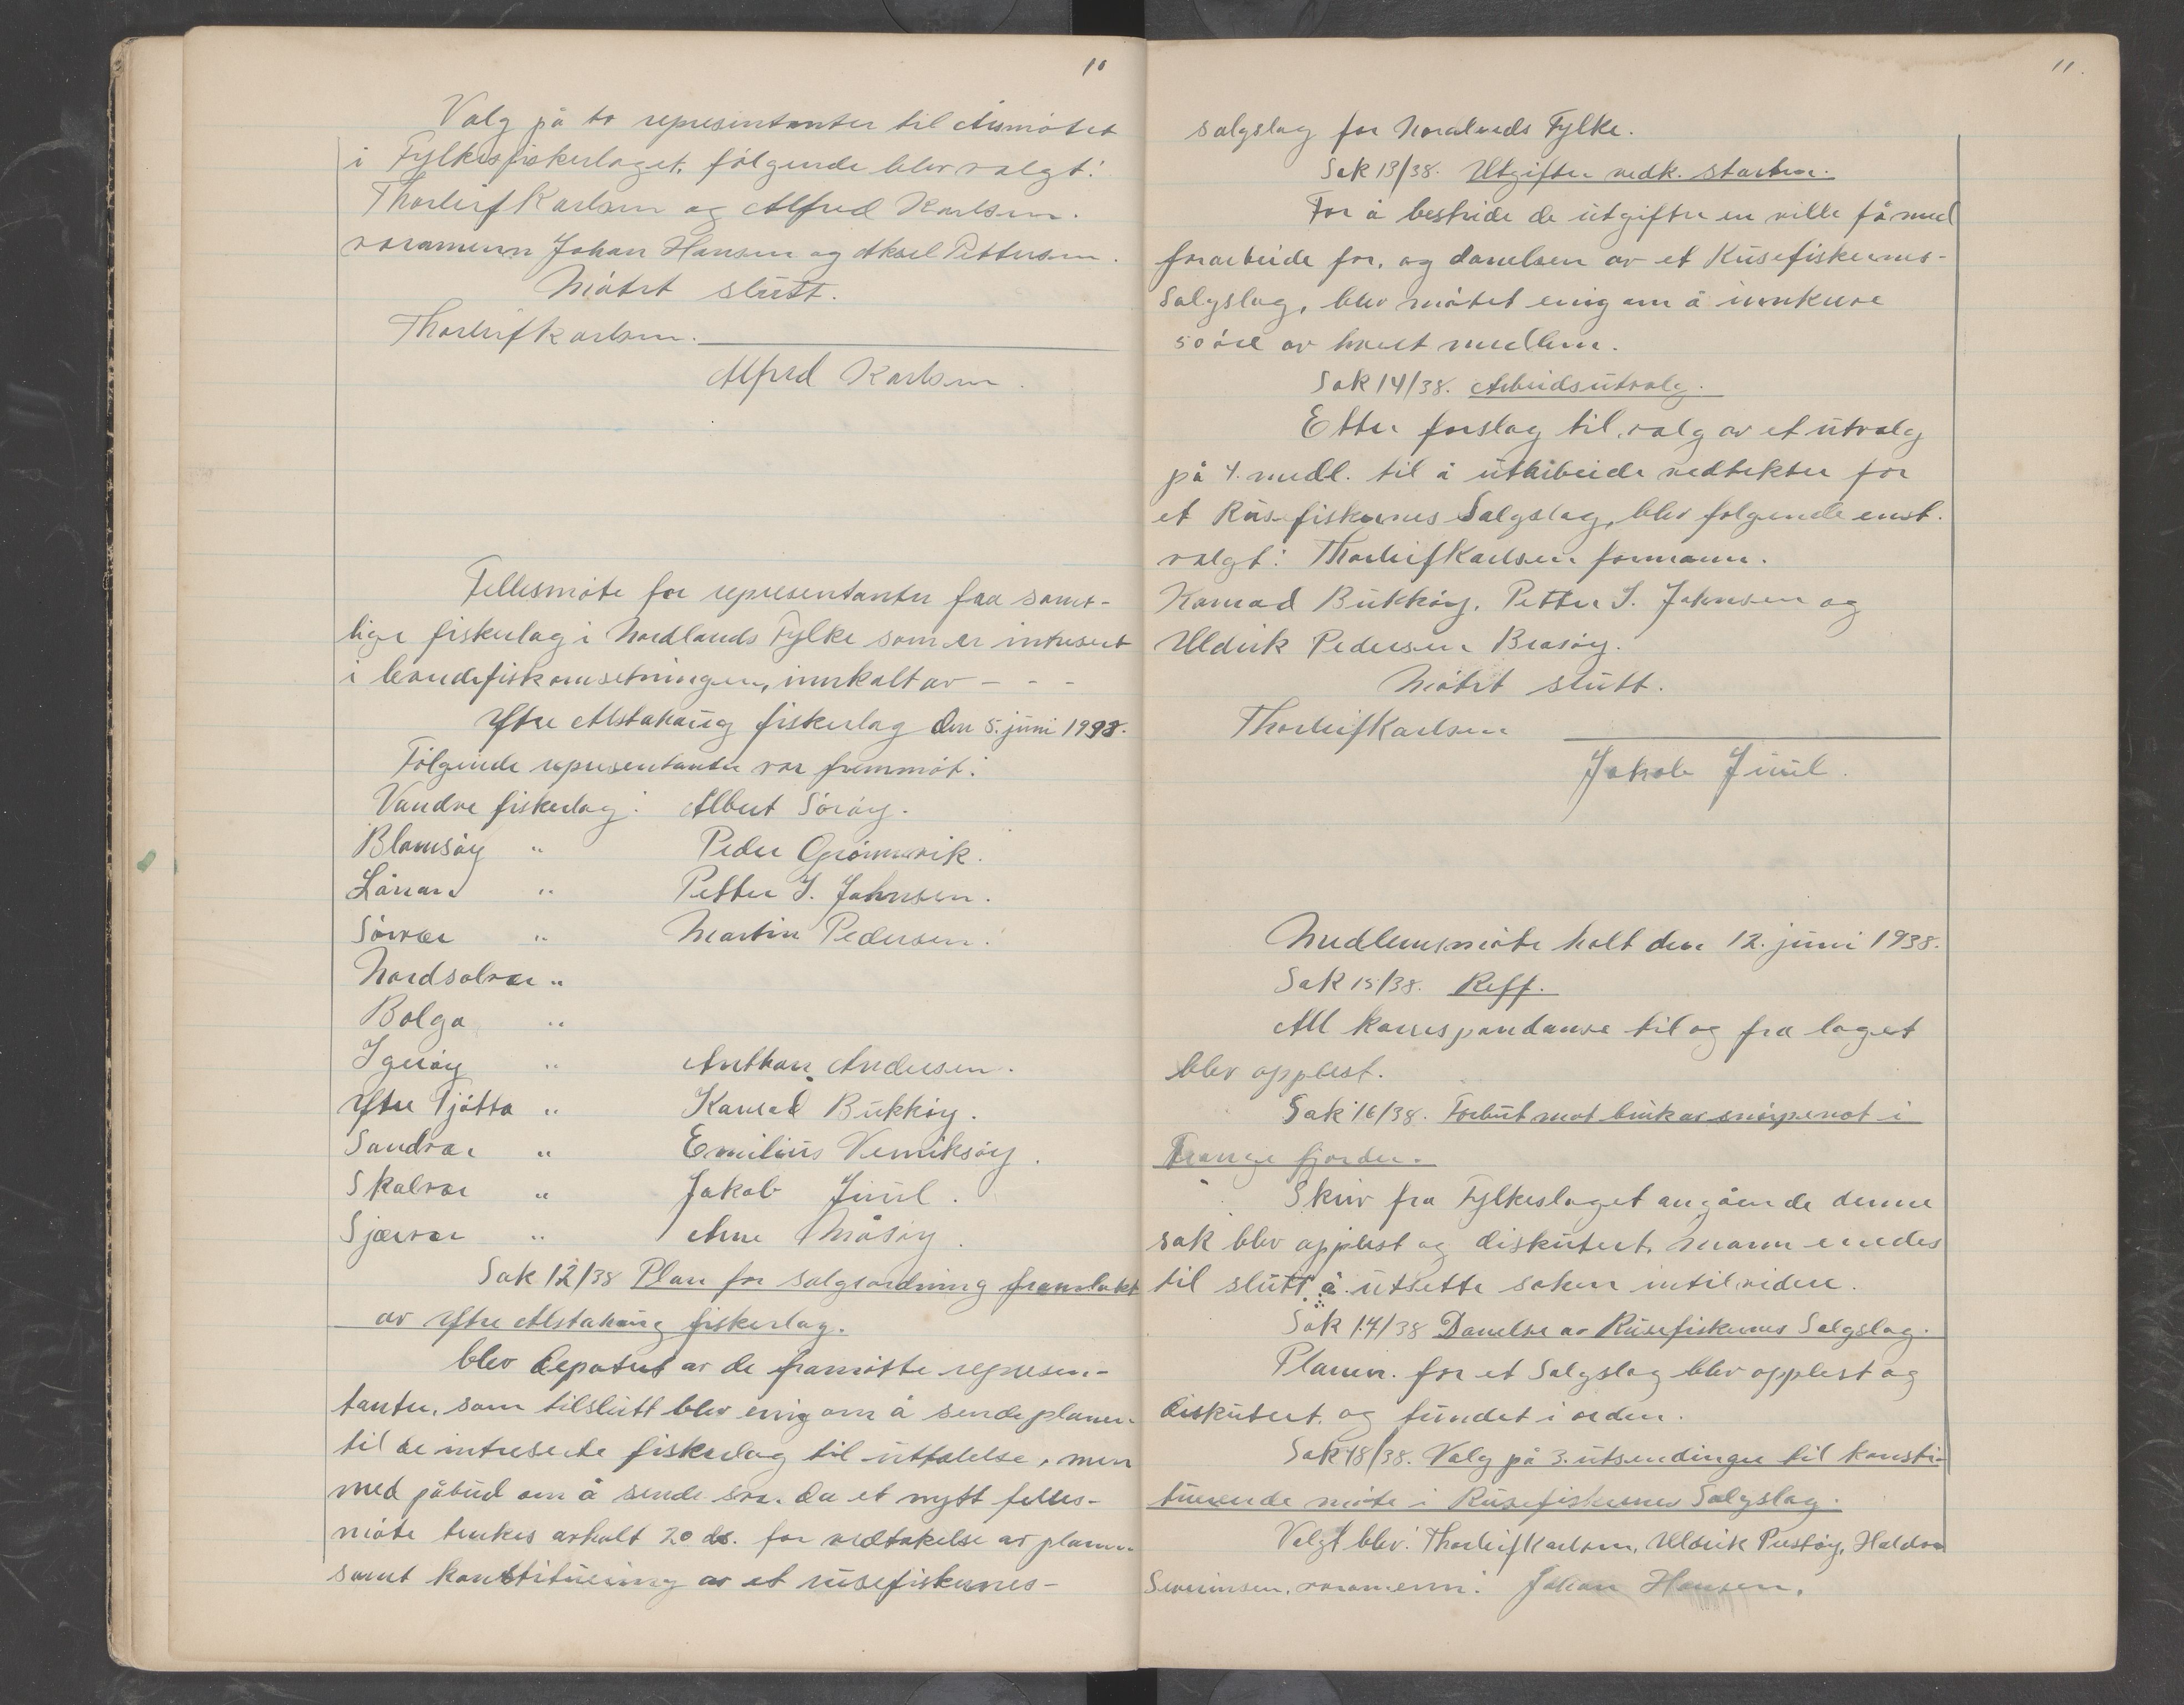 10
Valg på to representanter til årsmøtet
i Fylkesfiskerlaget, følgende blev valgt:
Thorleif Karlsen og Alfred Karlsen.
varamenn Johan Hansen og Aksel Pettersen.
Møtet slutt.
Thorleif Karlsen.
Alfred Karlsen.
Fellesmøte for representanter fra samt-
lige fiskerlag i Nordlands Fylke som er intresert
i levendefiskomsetningen, innkalt av - - -
Ytre Alstahaug fiskerlag den 5. juni 1938.
Følgende representanter var fremmøt:
Vandve fiskerlag: Albert Sørøy.
Blomsøy " Peder Grønnevik.
Lånan " Petter I. Johnsen.
Sørvær " Martin Pedersen.
Nordsolvær "
Bolga "
Igerøy " Anthon Andersen.
Ytre Tjøtta " Konrad Bukkøy.
Sandvær " Emilius Venniksøy.
Skålvær " Jakob Juul.
Sjærvær " Arne Måsøy.
Sak 12/38 Plan for salgsordning framlakt
av Ytre Alstahaug fiskerlag.
blev depatert av de framøtte represen-
tanter, som tilslutt blev enig om å sende planen
til de intreserte fiskerlag til uttalelse, men
med påbud om å sende svar. da et nytt felles-
møte tenkes avholt 20 ds. for vedtakelse av planen
samt konstituering av et rusefiskernes-
11.
salgslag for Nordlands Fylke.
Sak 13/38. Utgifter vedk. starten.
For å bestride de utgifter en ville få med
forarbeide for, og danelsen av et Rusefiskernes-
Salgslag, blev møtet enig om å innkreve
50 øre av hvert medlem.
Sak 14/38. Arbeidsutvalg.
Etter forslag til valg av et utvalg
på 4. medl. til å utarbeide vedtekter for
et Rusefiskernes Salgslag, blev følgende enst.
valgt: Thorleif Karlsen formann.
Konrad Bukkøy, Petter I. Johnsen og
Uldrik Pedersen Brasøy.
Møtet slutt.
Thorleif Karlsen
Jakob Juul.
Medlemsmøte holt den 12. juni 1938.
Sak 15/38. Reff.
All korrespondanse til og fra laget
blev opplest.
Sak 16/38. Forbut mot bruk av snørpenot i
Trange fjorder.
Skriv fra Fylkeslaget angående denne
sak blev opplest og diskutert, mann enedes
til slutt å utsette saken intil videre.
Sak 17/38 Danelse av Rusefiskernes Salgslag.
Planen for et Salgslag blev opplest og
diskutert, og fundet i orden.
Sak 18/38. Valg på 3. utsendinger til konsti-
tuerende møte i Rusefiskernes Salgslag.
Valgt blev: Thorleif Karlsen, Uldrik Prestøy, Haldor
Severinsen, varamenn: Johan Hansen.